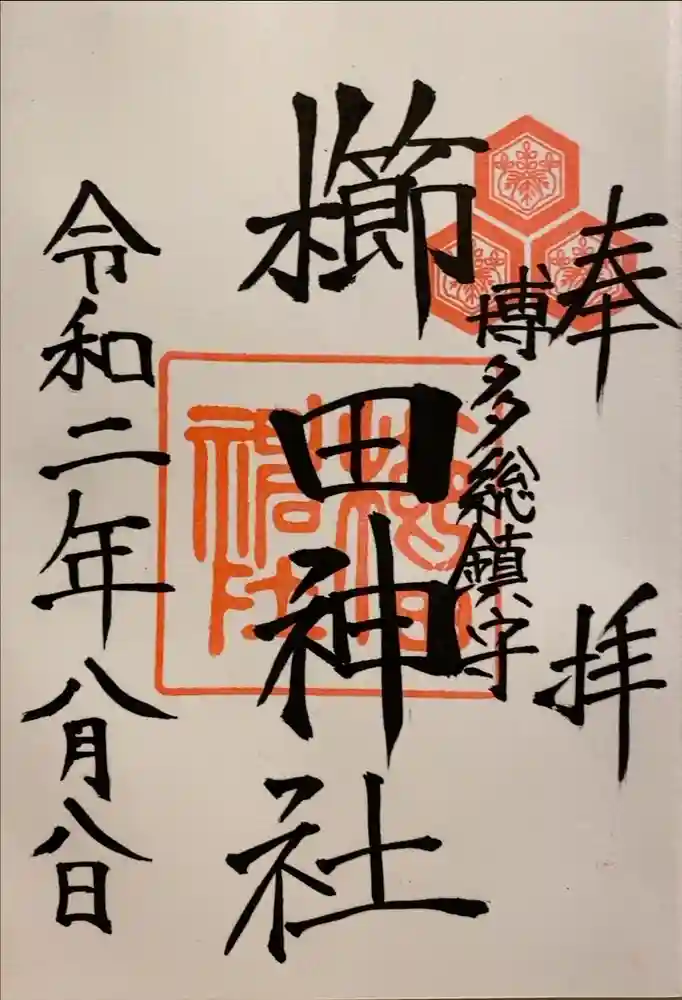 奉拝
博多総鎮守
櫛田神社
令和二年八月八日